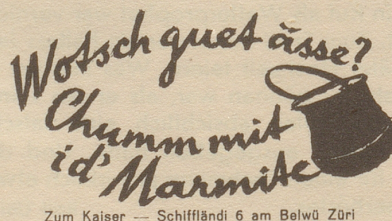 Wotsch guet ässe?
Chumm mit
i d' Marmite
Zum Kaiser — Schiffländi 6 am Belwü Züri